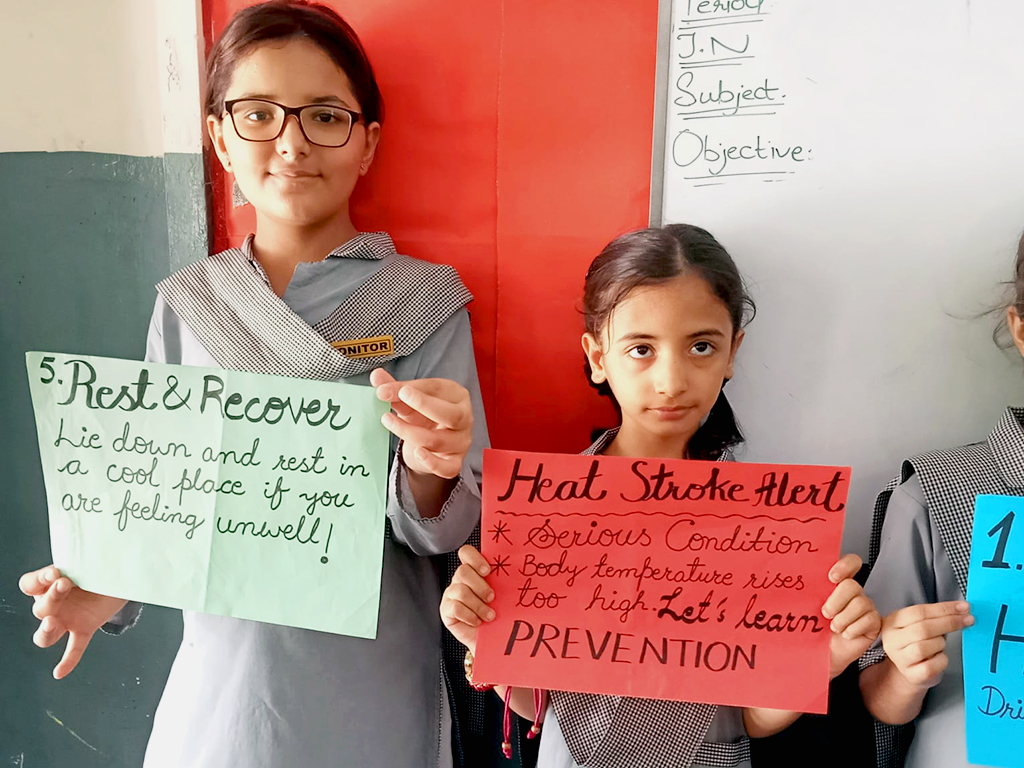 Period
J.N
Subject.
Objective:
MONITOR
5. Rest & Recover
Lie down and rest in
a cool place if you
are feeling unwell!
Heat Stroke Alert
* Serious Condition
* Body temperature rises
too high. Let's learn
PREVENTION
1.